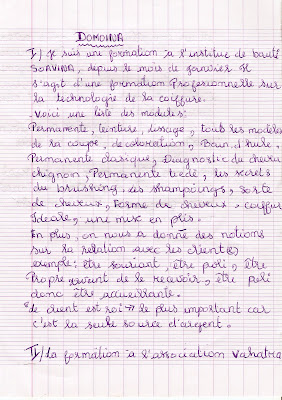 DOMOINA
I/ Je suis une formation à l'institue de bauté
SOAVINA, depuis le mois de Janvier Il
s'agit d'une formation Professionnelle sur
la technologie de la coiffure.
Voici une liste des modules:
Permanente, teinture, Lissage, tous les modeles
de la coupe, decoloration, Bain d'huile,
Permanente clasique, Diagnostic du cheveu
chignon, Permanente tiede, les secrets
du brushing, les shampoings, Sorte
de cheveux, Forme de cheveux, coiffur
Ideale, une mise en plis.
En plus, on nous a donné des notions
sur la relation avec les client(e)
exemple: être souriant, être poli, être
Propre avant de le recevoir, être poli
donc être accueillante.
"le client est roi" le plus important car
c'est la seule source d'argent.
II/ La formation à l'association Vahatra